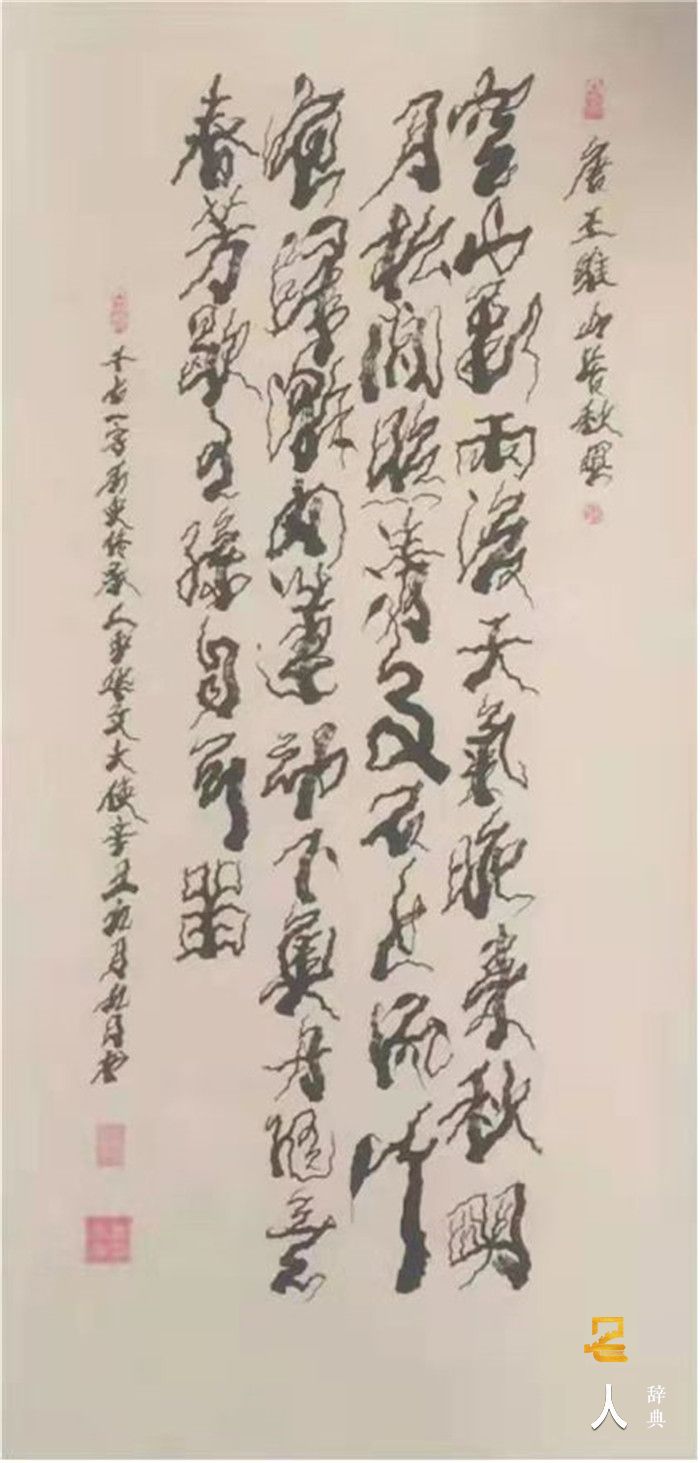 唐王維山居秋暝
空山新雨後天氣晚來秋明
月松間照清泉石上流竹
喧歸浣女蓮動下漁舟隨意
春芳歇王孫自可留
千古一字 史传承人 文大俠辛丑九月九日书
名人
辞典